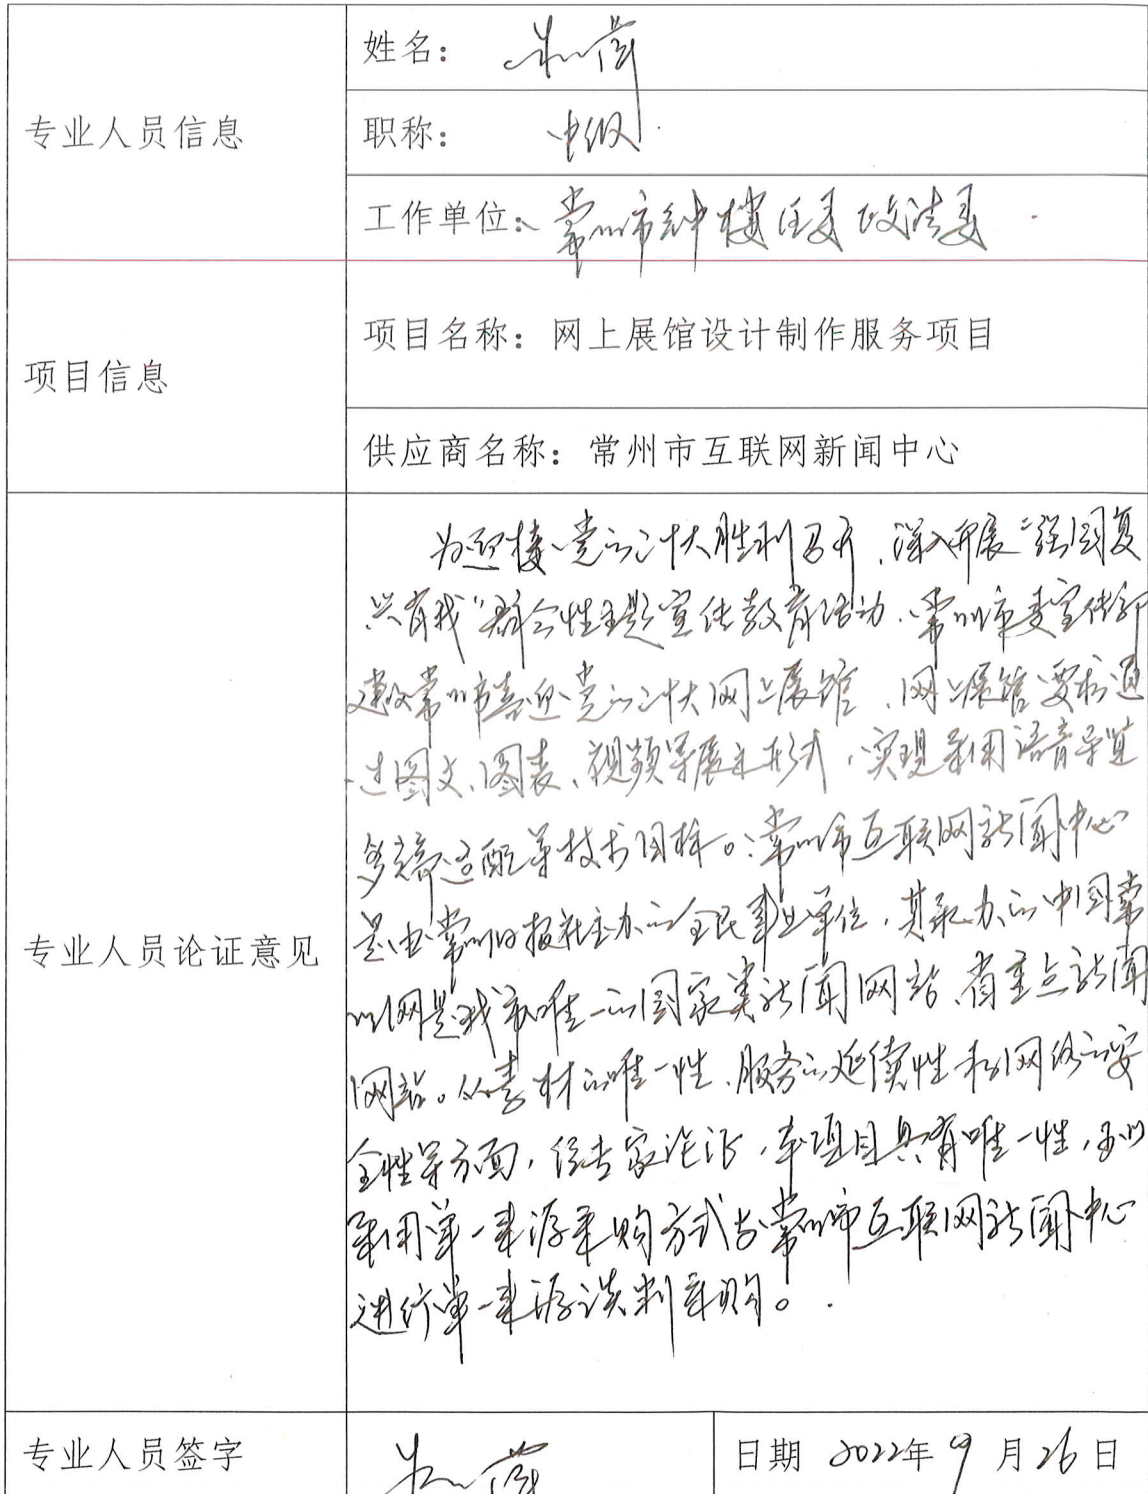 专业人员信息
姓名：
职称： 中级
工作单位： 常州市钟楼区委政法委
项目信息
项目名称：网上展馆设计制作服务项目
供应商名称：常州市互联网新闻中心
专业人员论证意见
为迎接党的二十大胜利召开，深入开展“强国复
兴有我”群众性主题宣传教育活动，常州市委宣传部
建设常州市喜迎党的二十大网上展馆，网上展馆要求通
过图文、图表、视频等展示形式，实现采用语音导览
多端适配等技术目标。常州市互联网新闻中心
是由常州日报社主办的全民事业单位，其承办的中国常
州网是我市唯一的国家类新闻网站、省重点新闻
网站。从素材的唯一性、服务的延续性和网络的安
全性等方面，经专家论证，本项目具有唯一性，可以
采用单一来源采购方式与常州市互联网新闻中心
进行单一来源谈判采购。
专业人员签字
日期 2022年9月26日